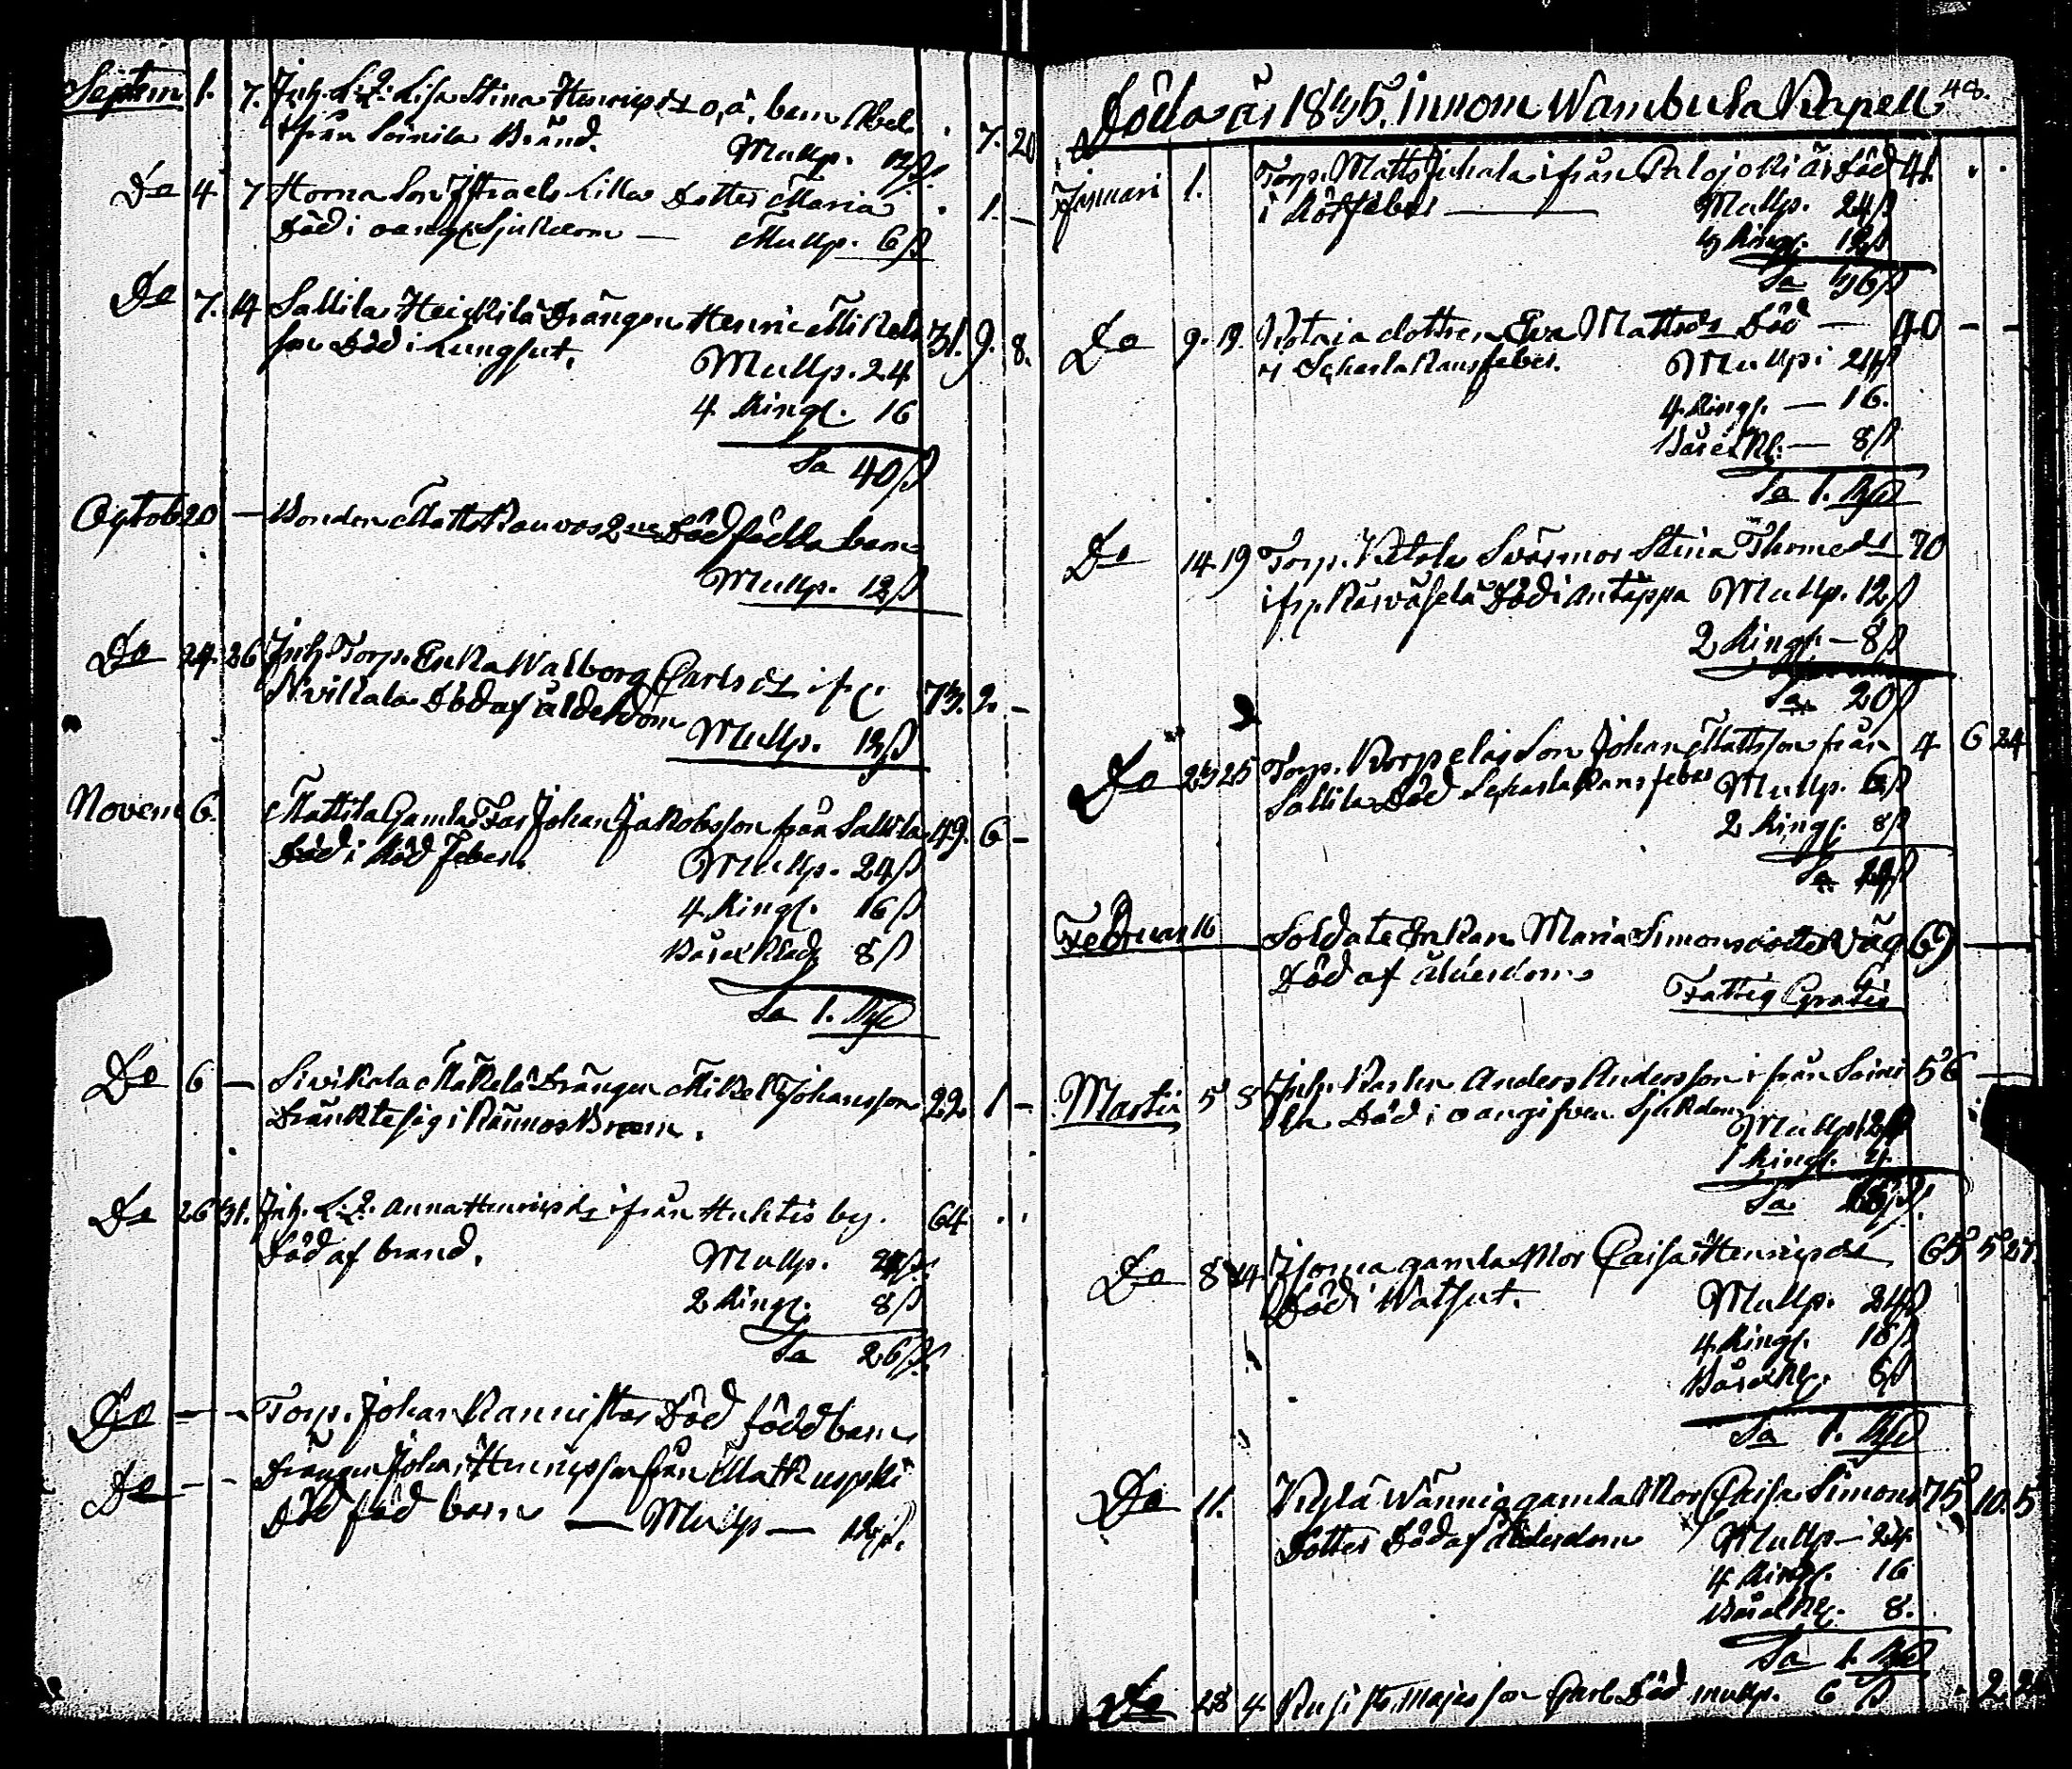 Septem 1. 7. Inh. L. Q. Lisa Stina Henricsdr o, ä, barn Abel . 7. 20
ifrån Soinila Bränd. Mullp. 12 ß.
Do 4 7 Horna Son Israels Lilla Dotter Maria . 1. —
Död i oangf. Sjukdom — Mullp. 6 ß
Do 7. 14 Sallila Heickilä Drängen Henric Mikels 31. 9. 8.
son Död i Lungsut. Mullp. 24
4 Ringf. 16
Sa 40 ß
Octob 20 — Bonden Matts Rauvas 2ne Död födda barn
Mullp. 12 ß
Do 24. 26 Inh. Torp. Enka Walborg Carlsdr if. 73. 2. —
Sivikala Död af ålderdom
Mullp. 12 ß
Novem 6. Mattila Gamla Far Johan Jakobsson från Sallila 49. 6 —
Död i Röd feber.
Mullp. 24 ß
4 Ringf. 16 ß
Bårekläd 8 ß
Sa 1. Rgd
Do 6 — Sivikala Mäkelä Drängen Mikel Johansson 22 1 —
Dränkte sig i Brunn.
Do 26 31. Inh. L. Q. Anna Henricsdr ifrån Huhtis by. 64 . .
Död af brand. Mullp.
2 Ringf. 8 ß
Sa 26 ß.
Do — — Torp. Johan Kannistos Död född barn
Do - - Drängen Johan Henricsson från Matkuspki
Död född barn — Mullp — 12 ß.
Döda år 1845. innom Wambula Kapell 48.
Januari 1. Torp. Matts Juhala ifrån Palojoki är Död 41. . .
i Rötfeber — Mullp. 24 ß
Ringf. 12 ß
Sa 36 ß
Do 9. 19. dottren Eva Mattsdr Död — 40 — —
i Scharlakansfeber. Mullp. 24 ß
4 Ringf. — 16.
Bårekl. — 8 ß
Sa 1. Rgd
Do 14 19 Torp. Ketola Svärmor Stina Thomedr 70
ifr. Karvasela Död i Antäppa Mullp. 12 ß
2 Ringf. — 8 ß
Sa 20 ß
Do 23 25 Torp. Korpelas Son Johan Mattsson från 4 6 24
Sallila Död Scharlakansfeber Mullp. 6 ß
2 Ringf. 8 ß
Sa 14 ß
Februar 16 Soldate Enkan Maria Simonsdotter Väg 69 —
Död af ålderdom
Fattig Gratis
Martii 5 8 Inh. Karlen Anders Andersson ifrån Soini 56 —
la Död i oangifven Sjukdom
Mullp. 12 ß
1 Ringf. 4.
Sa 16 ß.
Do 8 14 Isoma gamla Mor Caisa Henricsdr 65 5 27.
Död i Watsut. Mullp. 24 ß
4 Ringf. 18 ß
Bårekl. 6 ß
Sa 1. Rgd
Do 11. Kylä Wännis gamla Mor Caisa Simons 75 10. 5
Dotter Död af Ålderdom Mullp — 24
4 Ringf. 16
Bårekl. 8.
Sa 1. Rgd
Do 28 4. Majas son Carl Död mullp. 6 ß . 2. 2